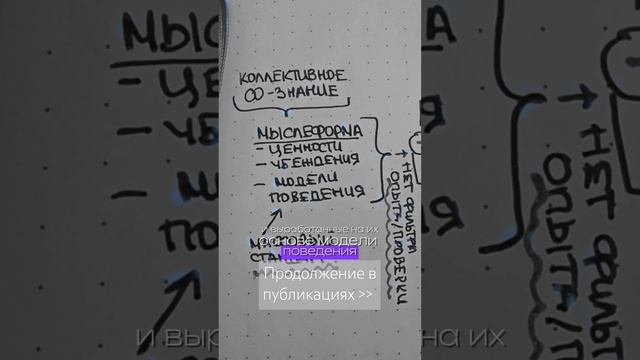 КОЛЛЕКТИВНОЕ
СО-ЗНАНИЕ
МЫСЛЕФОРМА
- ЦЕННОСТИ
- УБЕЖДЕНИЯ
- МОДЕЛИ
ПОВЕДЕНИЯ
→ НЕТ ФИЛЬТРА
ОПЫТА/ПРОВЕРКИ
и выработанные на их
основе модели
поведения
Продолжение в
публикациях >>